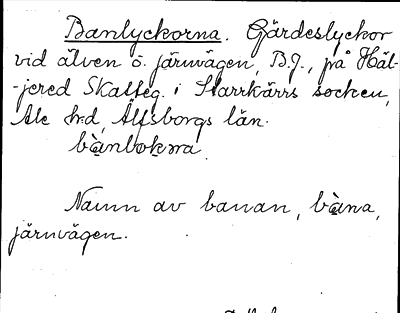 Banlyckorna. Gärdeslyckor
vid älven ö. järnvägen, B.J., på Häl-
-jered Skatteg. i Starrkärrs socken,
Ale hd, Älfsborgs län.
Namn av banan, bàna,
järnvägen.